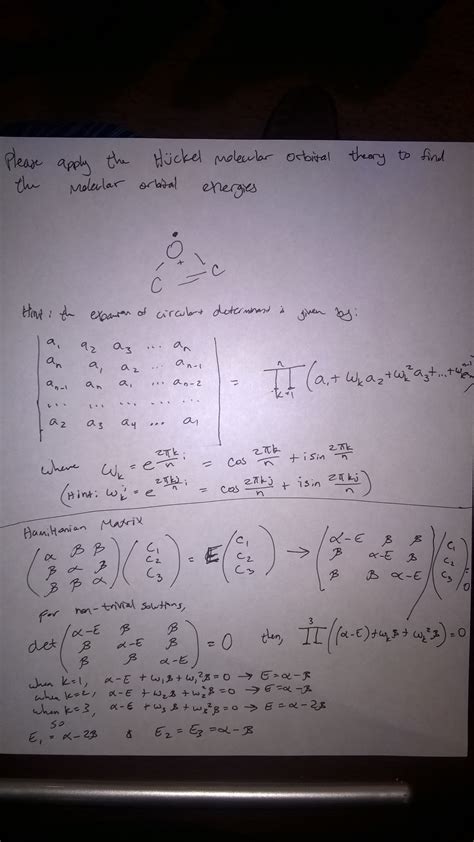 Please apply the Hückel molecular orbital theory to find
the molecular orbital energies
O
+
C C
Hint: the expansion of circulant determinant is given by:
| a₁ a₂ a₃ ... aₙ |
| aₙ a₁ a₂ ... aₙ₋₁ |
| aₙ₋₁ aₙ a₁ ... aₙ₋₂ | = ∏ₖ₌₁ⁿ (a₁ + ωₖa₂ + ωₖ²a₃ + ... + ωₖⁿ⁻¹
| ... ... ... ... ... |
| a₂ a₃ a₄ ... a₁ |
where ωₖ = e^(2πk/n i) = cos 2πk/n + i sin 2πk/n
(Hint: ωₖʲ = e^(2πkj/n i) = cos 2πkj/n + i sin 2πkj/n)
Hamiltonian Matrix
(α β β) (c₁) (c₁) (α-E β β) (c₁)
(β α β) (c₂) = E (c₂) → (β α-E β) (c₂) = 0
(β β α) (c₃) (c₃) (β β α-E) (c₃)
For non-trivial solutions,
(α-E β β)
det (β α-E β) = 0 then, ∏³ ((α-E) + ωₖβ + ωₖ²β) = 0
(β β α-E)
when k=1, α-E + ω₁β + ω₁²β = 0 → E = α-β
when k=2, α-E + ω₂β + ω₂²β = 0 → E = α-β
when k=3, α-E + ω₃β + ω₃²β = 0 → E = α-2β
so
E₁ = α-2β & E₂ = E₃ = α-β